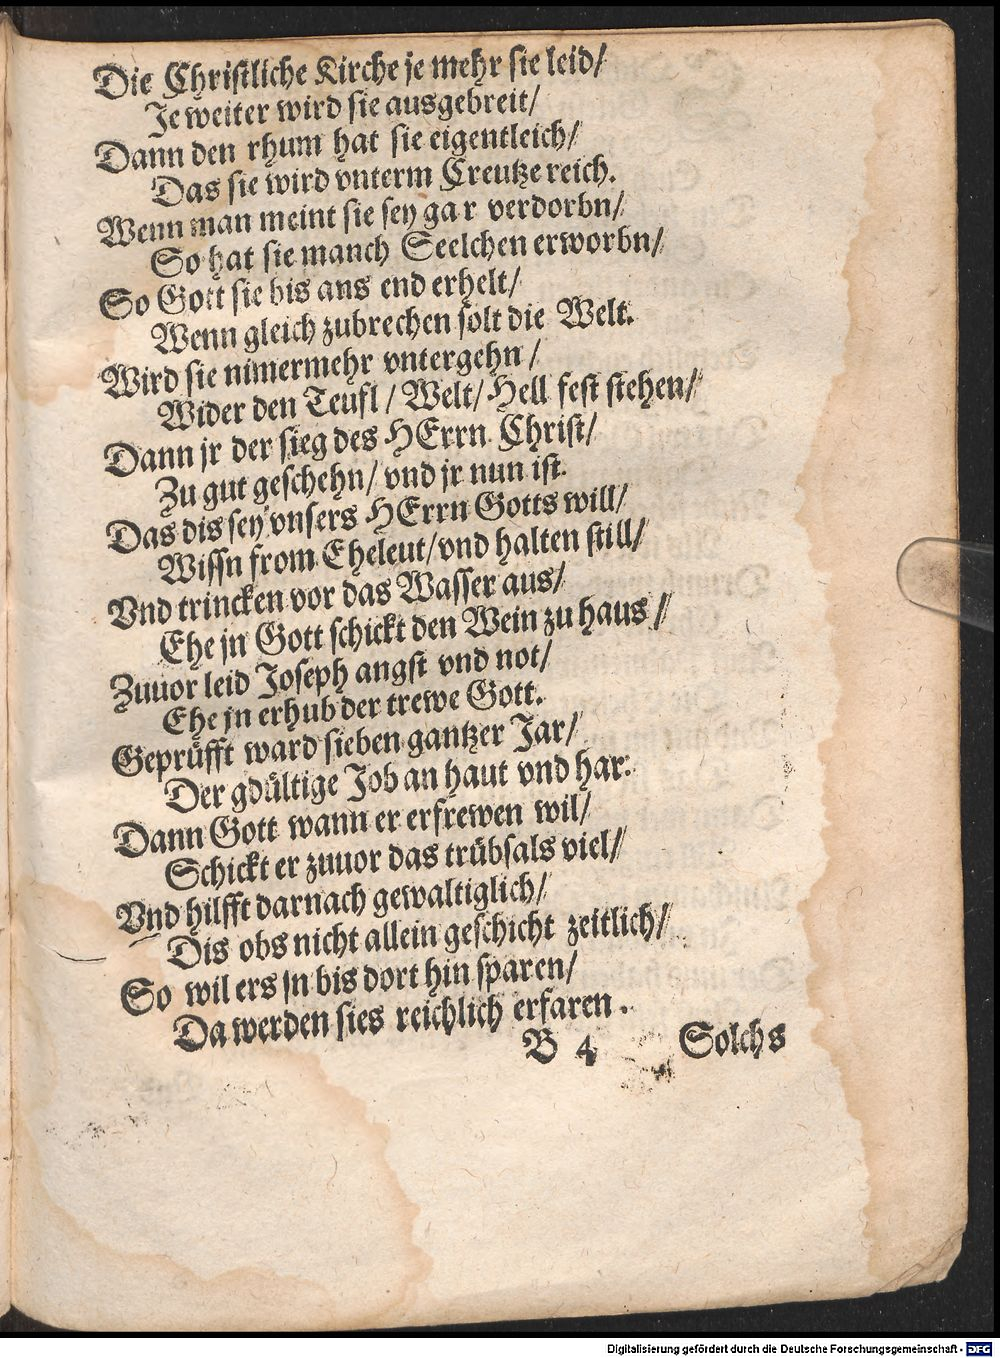 Die Christliche Kirche je mehr sie leid/
Je weiter wird sie ausgebreit/
Dann den rhum hat sie eigentleich/
Das sie wird vnterm Creutze reich.
Wenn man meint sie sey gar verdorbn/
So hat sie manch Seelchen erworbn/
So Gott sie bis ans end erhelt/
Wenn gleich zubrechen solt die Welt.
Wird sie nimermehr vntergehn/
Wider den Teufl/ Welt/ Hell fest stehen/
Dann jr der sieg des HErrn Christ/
Zu gut geschehn/ vnd jr nun ist.
Das dis sey vnsers HErrn Gotts will/
Wissn from Eheleut/ vnd halten still/
Vnd trincken vor das Wasser aus/
Ehe jn Gott schickt den Wein zu haus/
Zuuor leid Joseph angst vnd not/
Ehe jn erhub der trewe Gott.
Geprüfft ward sieben gantzer Jar/
Der gdültige Job an haut vnd har:
Dann Gott wann er erfrewen wil/
Schickt er zuuor das trübsals viel/
Vnd hilfft darnach gewaltiglich/
Dis obs nicht allein geschicht zeitlich/
So wil ers jn bis dort hin sparen/
Da werden sies reichlich erfaren.
B 4 Solchs
Digitalisierung gefördert durch die Deutsche Forschungsgemeinschaft - DFG